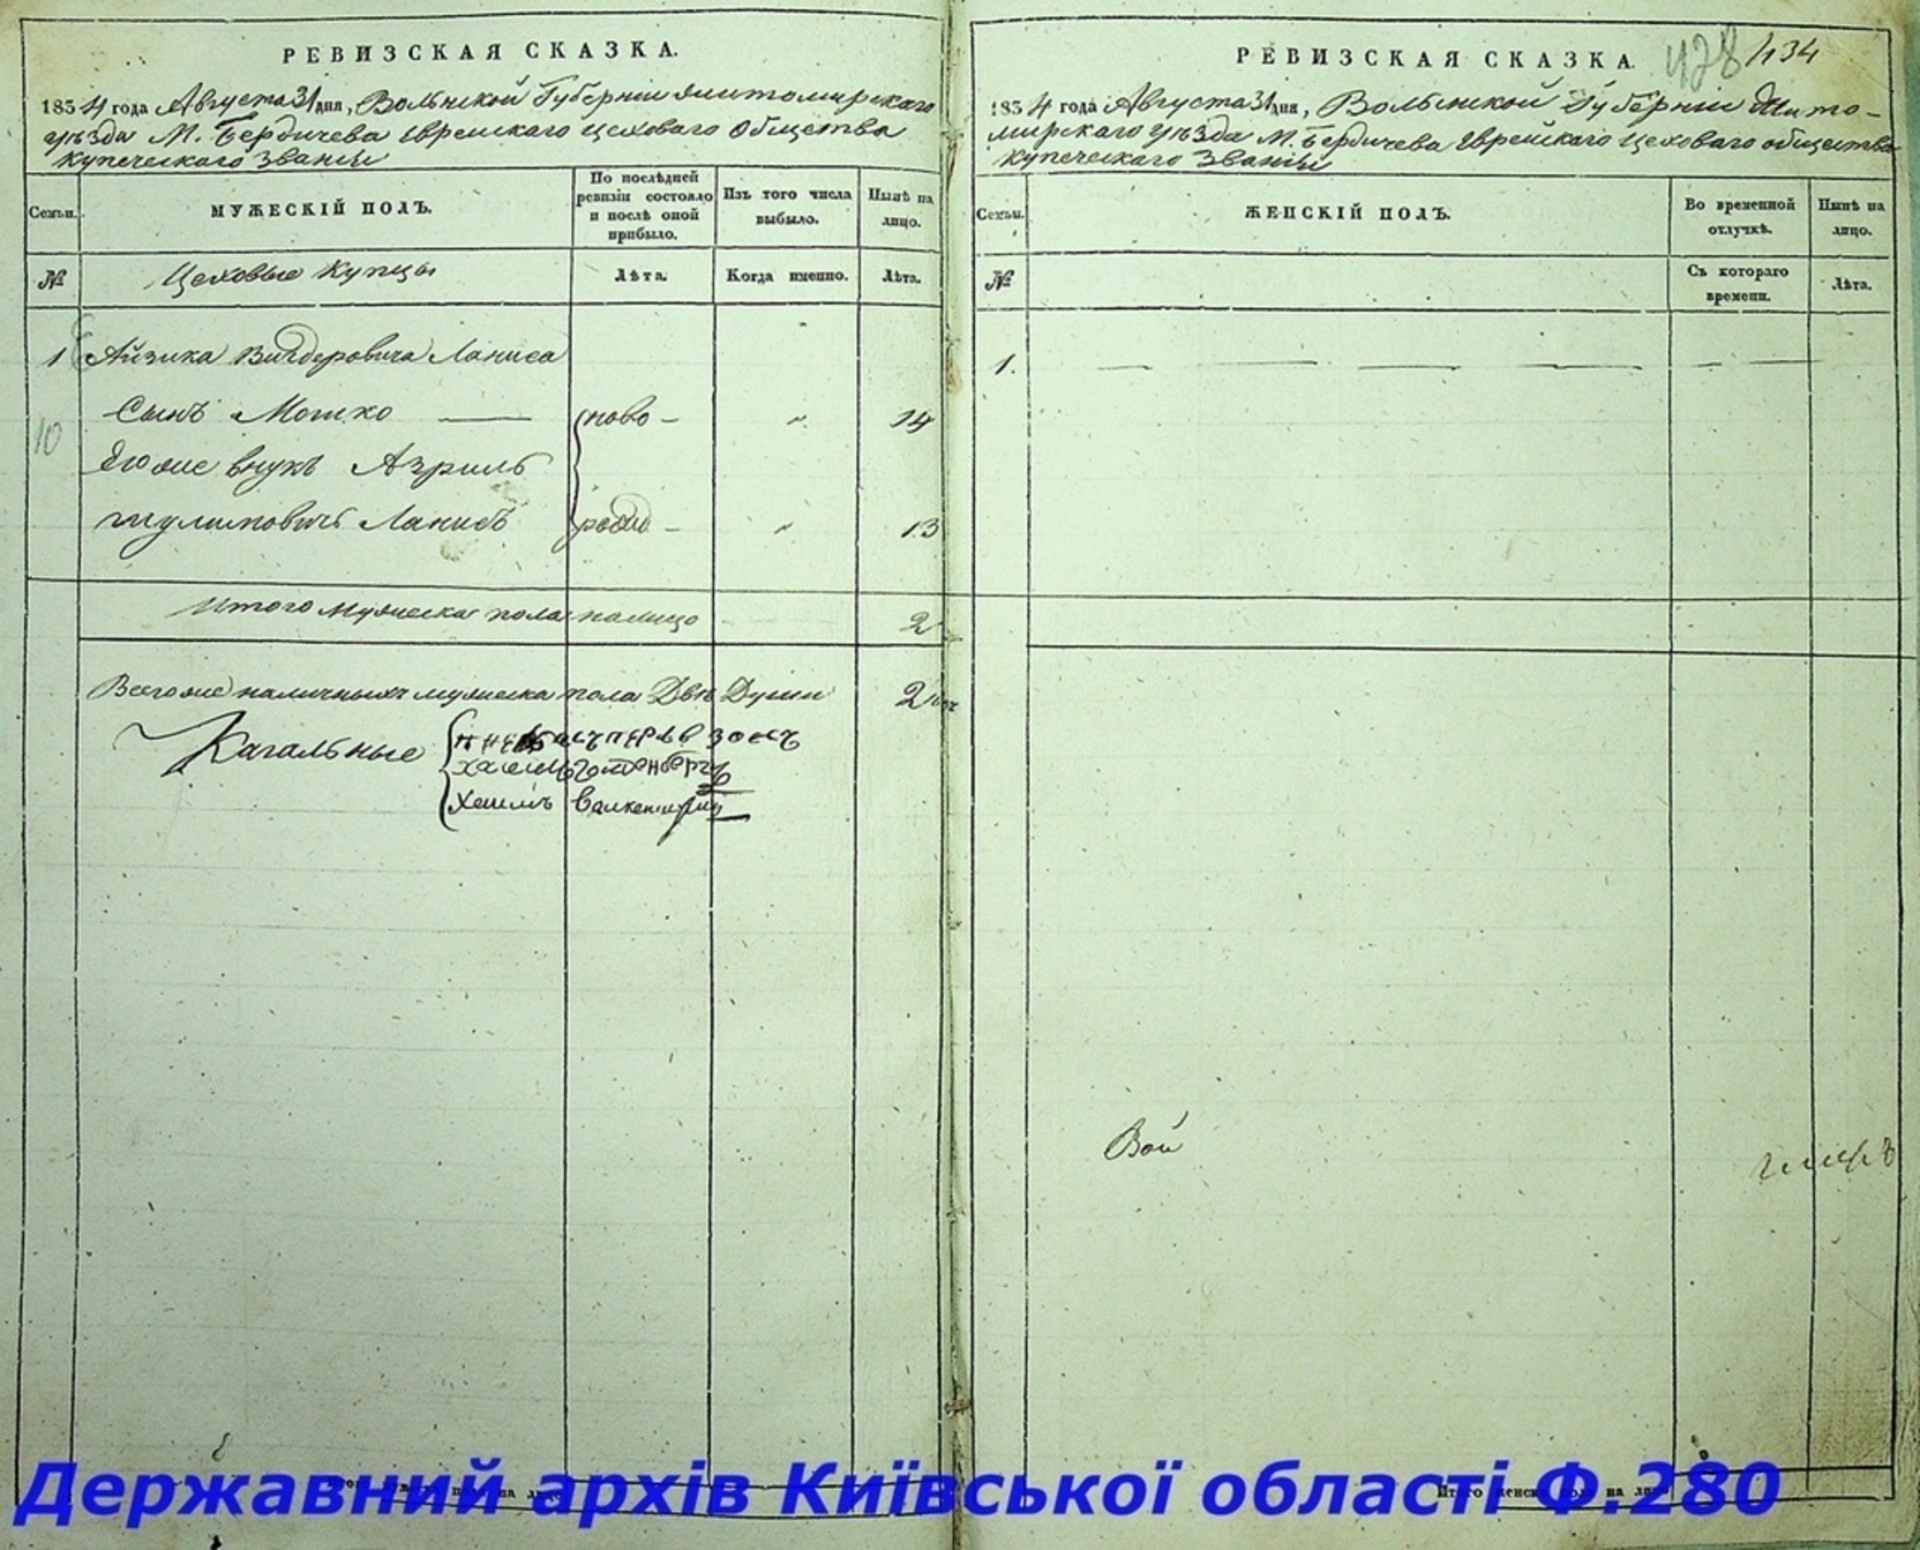 РЕВИЗСКАЯ СКАЗКА.
1834 года Августа 31 дня, Волынской Губерніи Житомирскаго
уѣзда М. Бердичева Еврейскаго цеховаго Общества
купеческаго званія
Семьи.
МУЖЕСКІЙ ПОЛЪ.
По послѣдней ревизіи состояло и послѣ оной прибыло.
Изъ того числа выбыло.
Нынѣ на лицо.
№
Цеховые Купцы
Лѣта.
Когда именно.
Лѣта.
1 Айзика Вигдоровича Ланиса
Сынъ Мошко — ново - 〃 14
10
Его же внукъ Азриль
Шулимовичъ Ланисъ рожд - 〃 13
Итого мужеска пола налицо 2
Всего же наличныхъ мужеска пола Двѣ Души 2
Кагальные
Хаимъ
РЕВИЗСКАЯ СКАЗКА.
428 / 134
1834 года Августа 31 дня, Волынской Губерніи Жито-
мирскаго уѣзда М. Бердичева Еврейскаго цеховаго общества
купеческаго званія
Семьи.
ЖЕНСКІЙ ПОЛЪ.
Во временной отлучкѣ.
Нынѣ на лицо.
№
Съ котораго времени.
Лѣта.
1. — — — — — —
Вой
Державний архів Київської області Ф.280